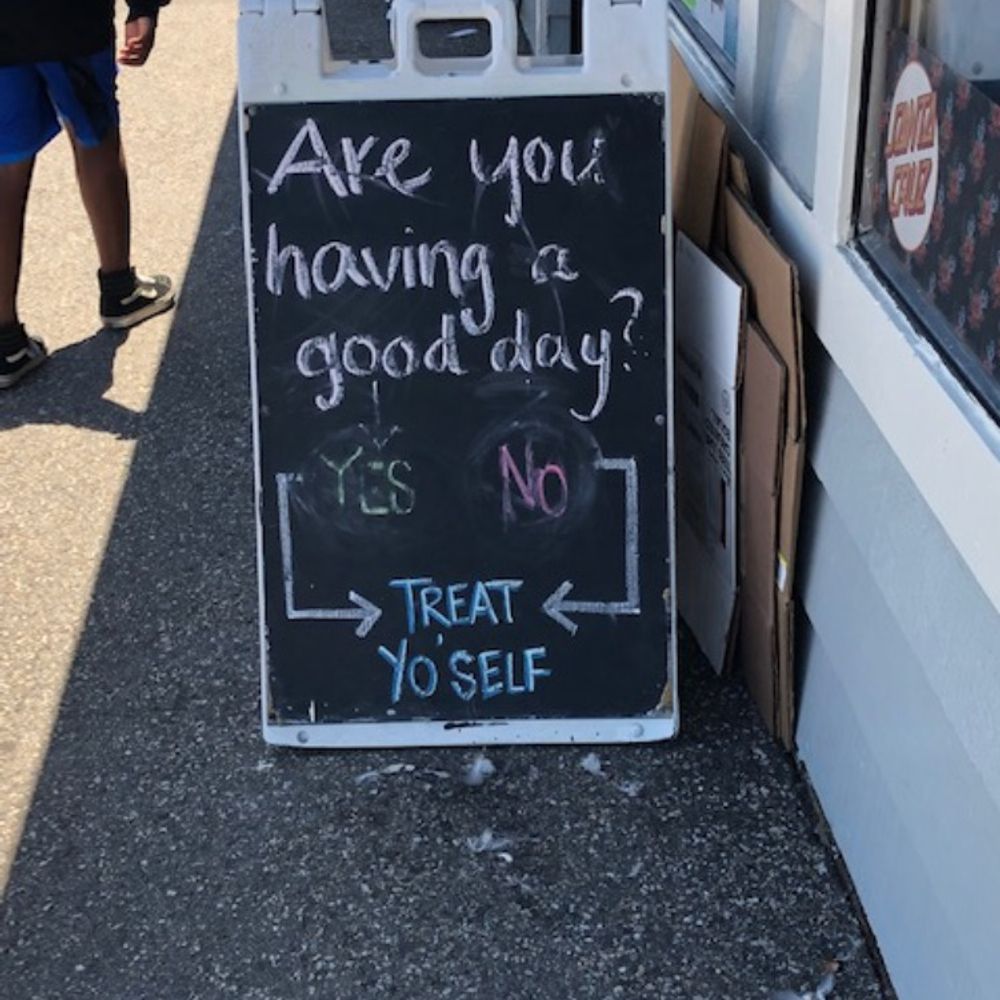 Are you
having a
good day?
YES NO
TREAT
YO'SELF
SANTA
CRUZ